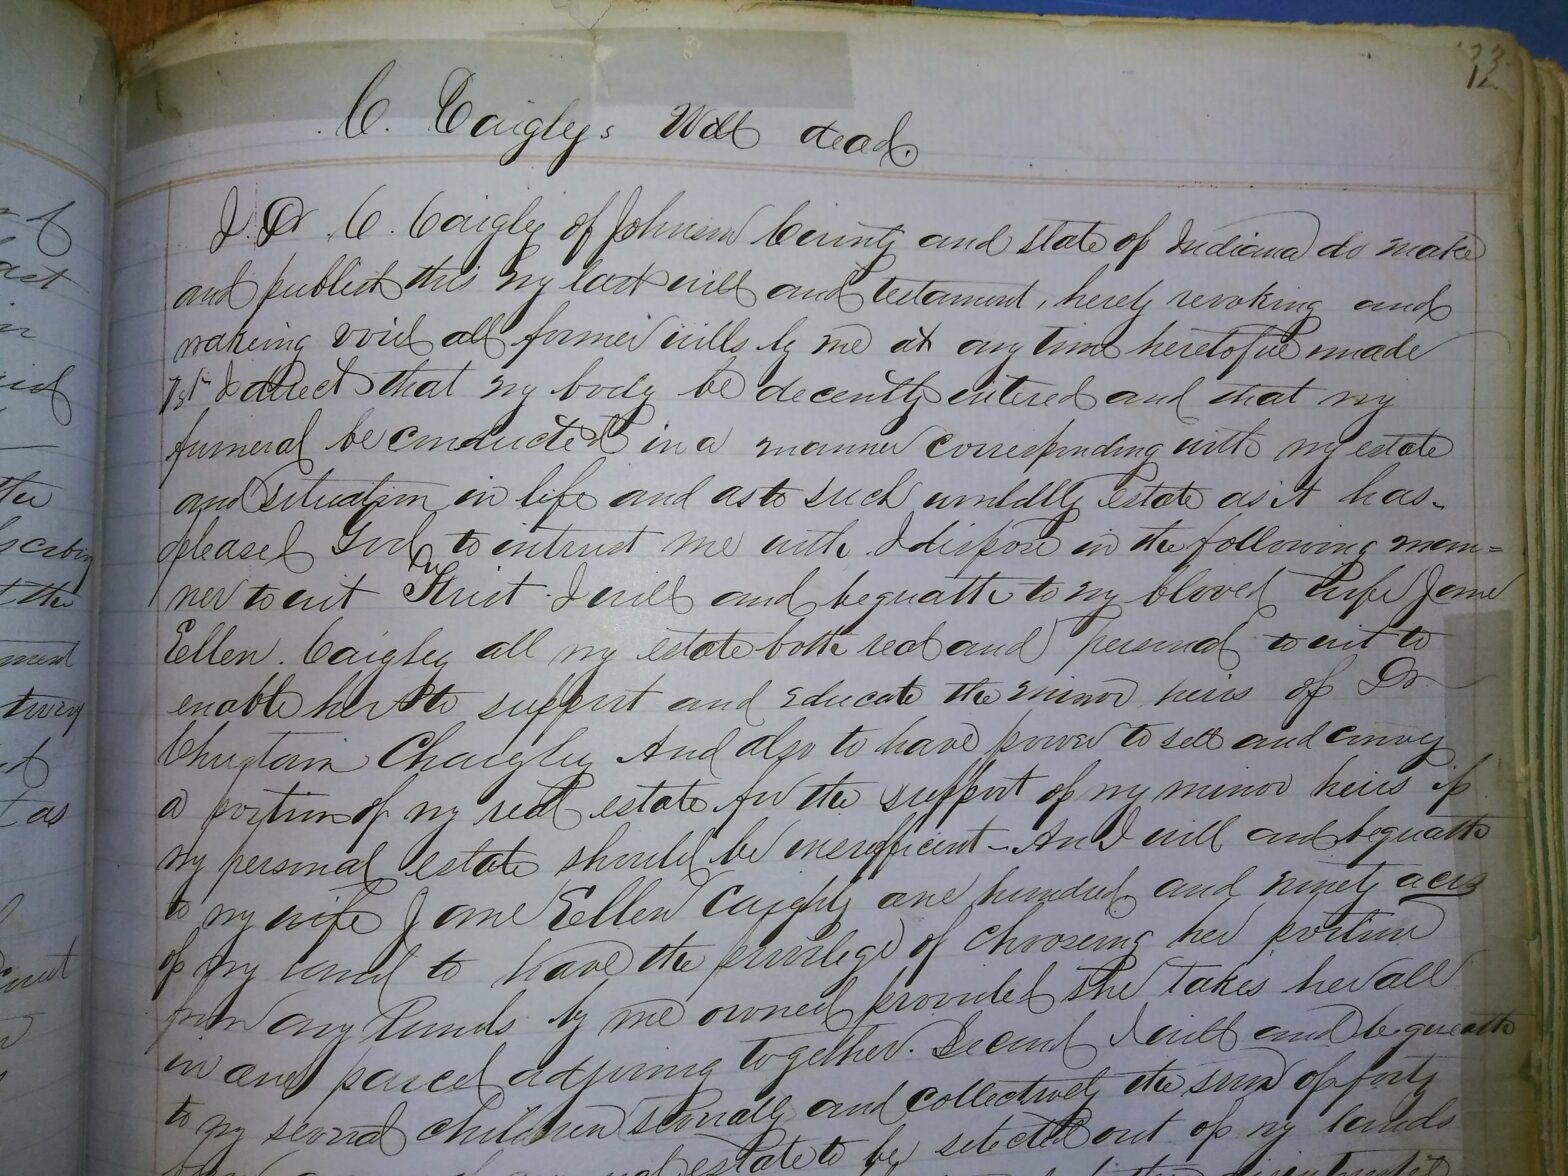 C. Caigleys Will dead.
I Dr C. Caigley of Johnson County and State of Indiana do make
and publish this my last will and testament, hereby revoking and
making void all former wills by me at any time heretofore made
1st I direct that my body be decently intered and that my
funeral be conducted in a manner corresponding with my estate
and situation in life and as to such worldly estate as it has
pleased God to intrust me with I dispose in the following man=
ner to wit First I will and bequeath to my bloved Wife Jane
Ellen Caigley all my estate both real and personal to wit to
enable her to support and educate the minor heirs of Dr
Chaigley And also to have power to sell and convey
a portion of my real estate for the support of my minor heirs if
my personal estate should be insufficient - And I will and bequeath
to my wife Jane Ellen Caighly one hundred and ninety acres
of my land to have the privilege of choosing her portion
from any lands by me owned provided She takes her all
in one parcel adjoining together. Second I will and bequeath
to my several children severally and collectively the sum of forty
estate to be selected out of my lands